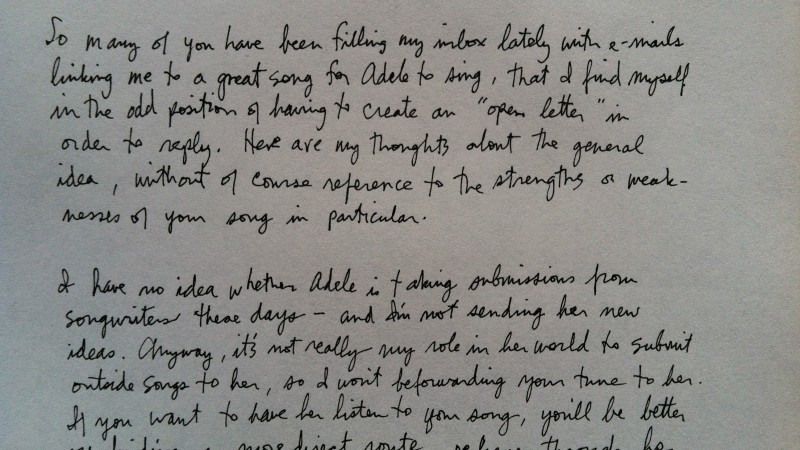 So many of you have been filling my inbox lately with e-mails
linking me to a great song for Adele to sing, that I find myself
in the odd position of having to create an "open letter" in
order to reply. Here are my thoughts about the general
idea, without of course reference to the strengths or weak-
nesses of your song in particular.
I have no idea whether Adele is taking submissions from
songwriters these days – and I'm not sending her new
ideas. Anyway, it's not really my role in her world to submit
outside songs to her, so I won't be forwarding your tune to her.
If you want to have her listen to your song, you'll be better
more direct route